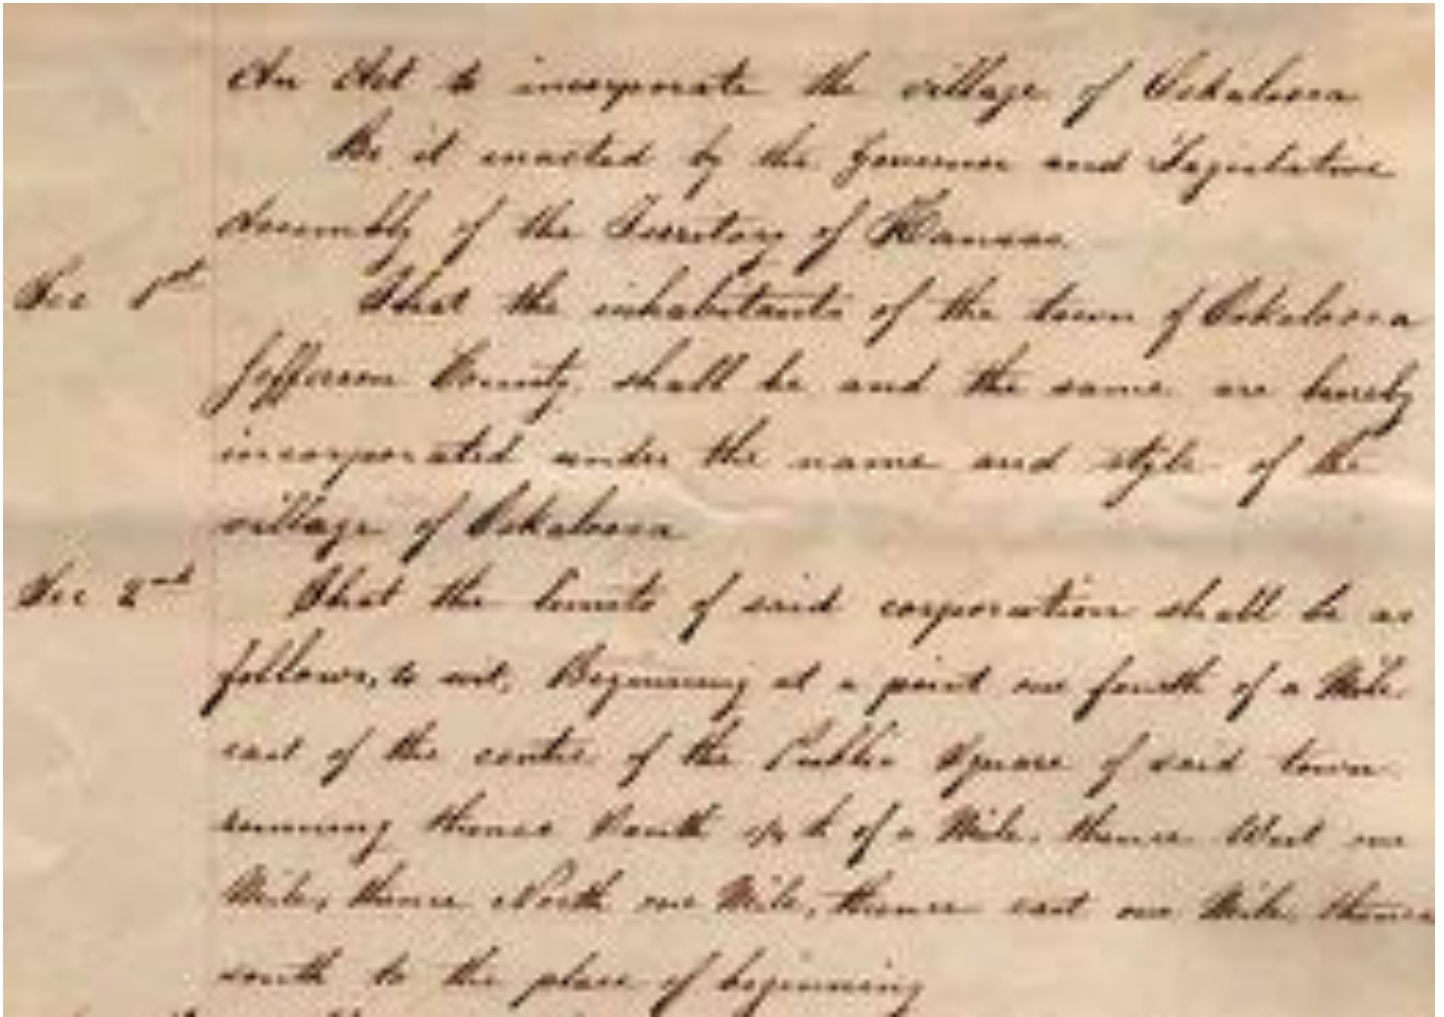 An Act to incorporate the village of Oskaloosa
Be it enacted by the Governor and Legislative
Assembly of the Territory of Kansas
Sec 1st That the inhabitants of the town of Oskaloosa
Jefferson County, shall be and the same are hereby
incorporated under the name and style of the
village of Oskaloosa
Sec 2nd That the limits of said corporation shall be as
follows, to wit, Beginning at a point one fourth of a Mile
east of the centre of the Public Square of said town
running thence South 1/4th of a Mile, thence West one
Mile, thence North one Mile, thence east one Mile, thence
south to the place of beginning